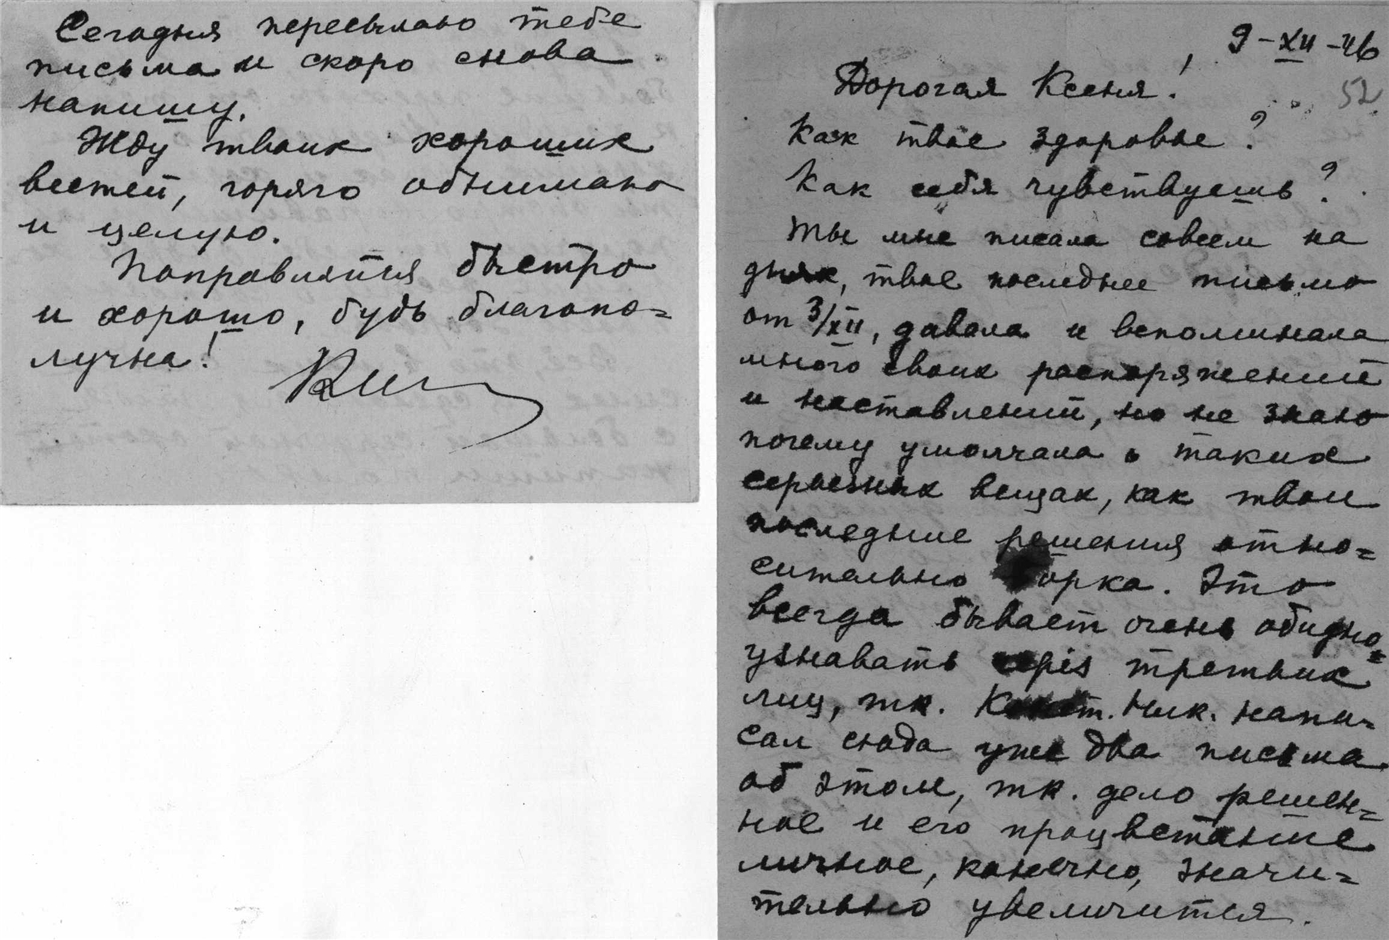 Сегодня пересылаю тебе
письма и скоро снова
напишу.
Жду твоих хороших
вестей, горячо обнимаю
и целую.
Поправляйся быстро
и хорошо, будь благопо=
лучна!
9-XII-46
52
Дорогая Ксеня!
Как твое здоровье?
Как себя чувствуешь?
Ты мне писала совсем на
днях, твое последнее письмо
от 3/XII, давала и вспоминала
много своих распоряжений
и наставлений, но не знаю
почему умолчала о таких
серьезных вещах, как твои
последние решения отно=
сительно Юрка. Это
всегда бывает очень обидно=
узнавать через третьих
лиц, тк. Конст. Ник. напи=
сал сюда уже два письма
об этом, тк. дело решен=
ное и его процветание
личное, конечно, значи=
тельно увеличится.